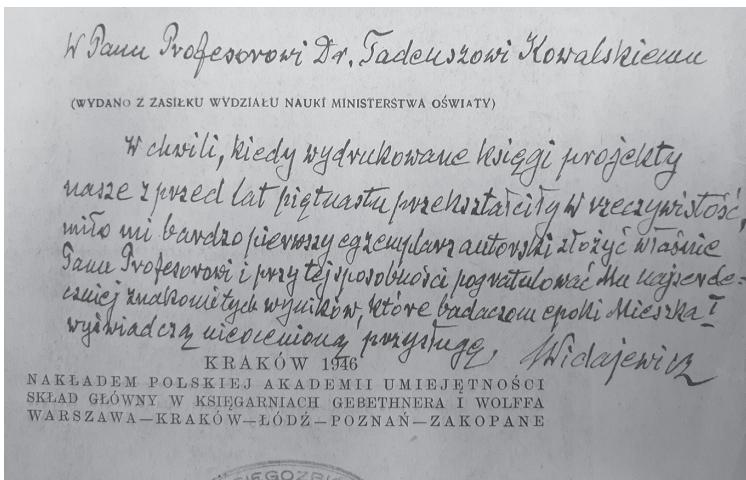 W Panu Profesorowi Dr. Tadeuszowi Kowalskiemu
(WYDANO Z ZASIŁKU WYDZIAŁU NAUKI MINISTERSTWA OŚWIATY)
W chwili, kiedy wydrukowane księgi projekty
nasze z przed lat piętnastu przekształciły w rzeczywistość,
miło mi bardzo pierwszy egzemplarz autorski złożyć właśnie
Panu Profesorowi i przy tej sposobności pogratulować Mu najserde=
czniej znakomitych wyników, które badaczom epoki Mieszka I
wyświadczą nieocenioną przysługę, Widajewicz
KRAKÓW 1946
NAKŁADEM POLSKIEJ AKADEMII UMIEJĘTNOŚCI
SKŁAD GŁÓWNY W KSIĘGARNIACH GEBETHNERA I WOLFFA
WARSZAWA—KRAKÓW—ŁÓDŹ—POZNAŃ—ZAKOPANE